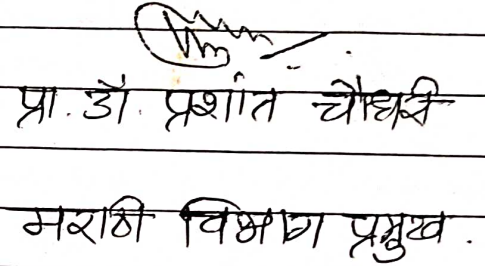 प्रा. डॉ. प्रशांत चौधरी
मराठी विभाग प्रमुख.